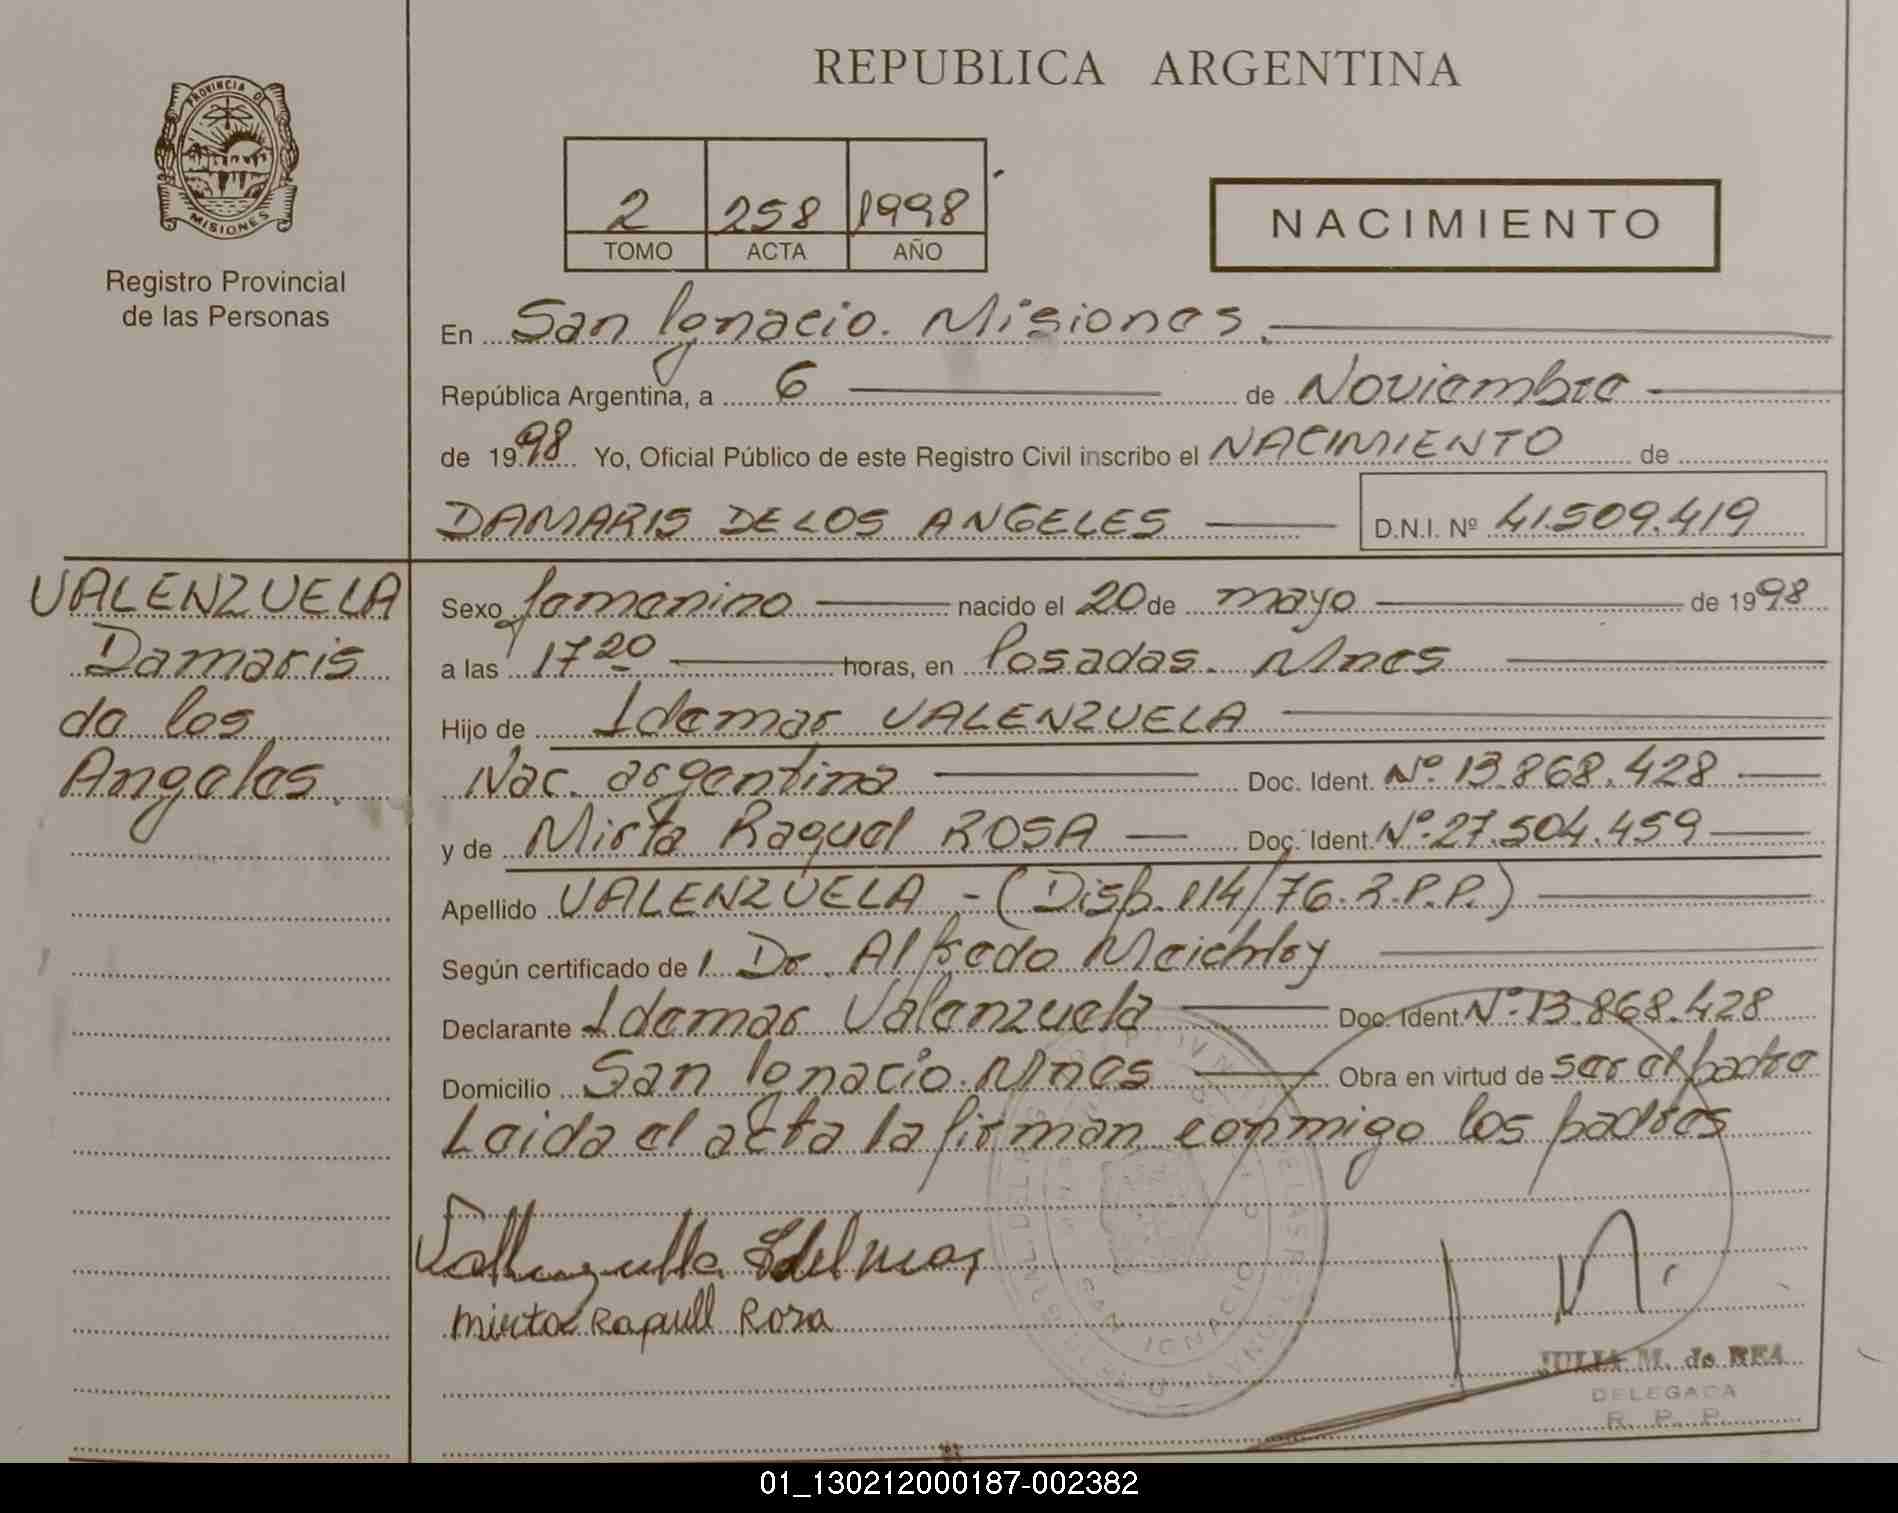 PROVINCIA DE
MISIONES
Registro Provincial
de las Personas
REPUBLICA ARGENTINA
2 258 1998
TOMO ACTA AÑO
NACIMIENTO
En San Ignacio. Misiones.
República Argentina, a 6 de Noviembre
de 1998 Yo, Oficial Público de este Registro Civil inscribo el NACIMIENTO de
DAMARIS DE LOS ANGELES D.N.I. Nº 41.509.419
VALENZUELA
Damaris
de los
Angeles.
Sexo femenino nacido el 20 de mayo de 1998
a las 17 20 horas, en Posadas. Mnes
Hijo de Idemar VALENZUELA
Nac. argentina Doc. Ident. Nº 13.868.428
y de Mirta Raquel ROSA Doc. Ident. Nº 27.504.459
Apellido VALENZUELA - (Disp. 114/76. R.P.P.)
Según certificado de 1. Dr. Alfredo
Declarante Idemar Valenzuela Doc. Ident. Nº 13.868.428
Domicilio San Ignacio. Mnes Obra en virtud de ser el padre
Leida el acta la firman conmigo los padres
SAN IGNACIO
Mirta Raquell Rosa
JULIA M. de REA
DELEGADA
R. P. P.
01_130212000187-002382